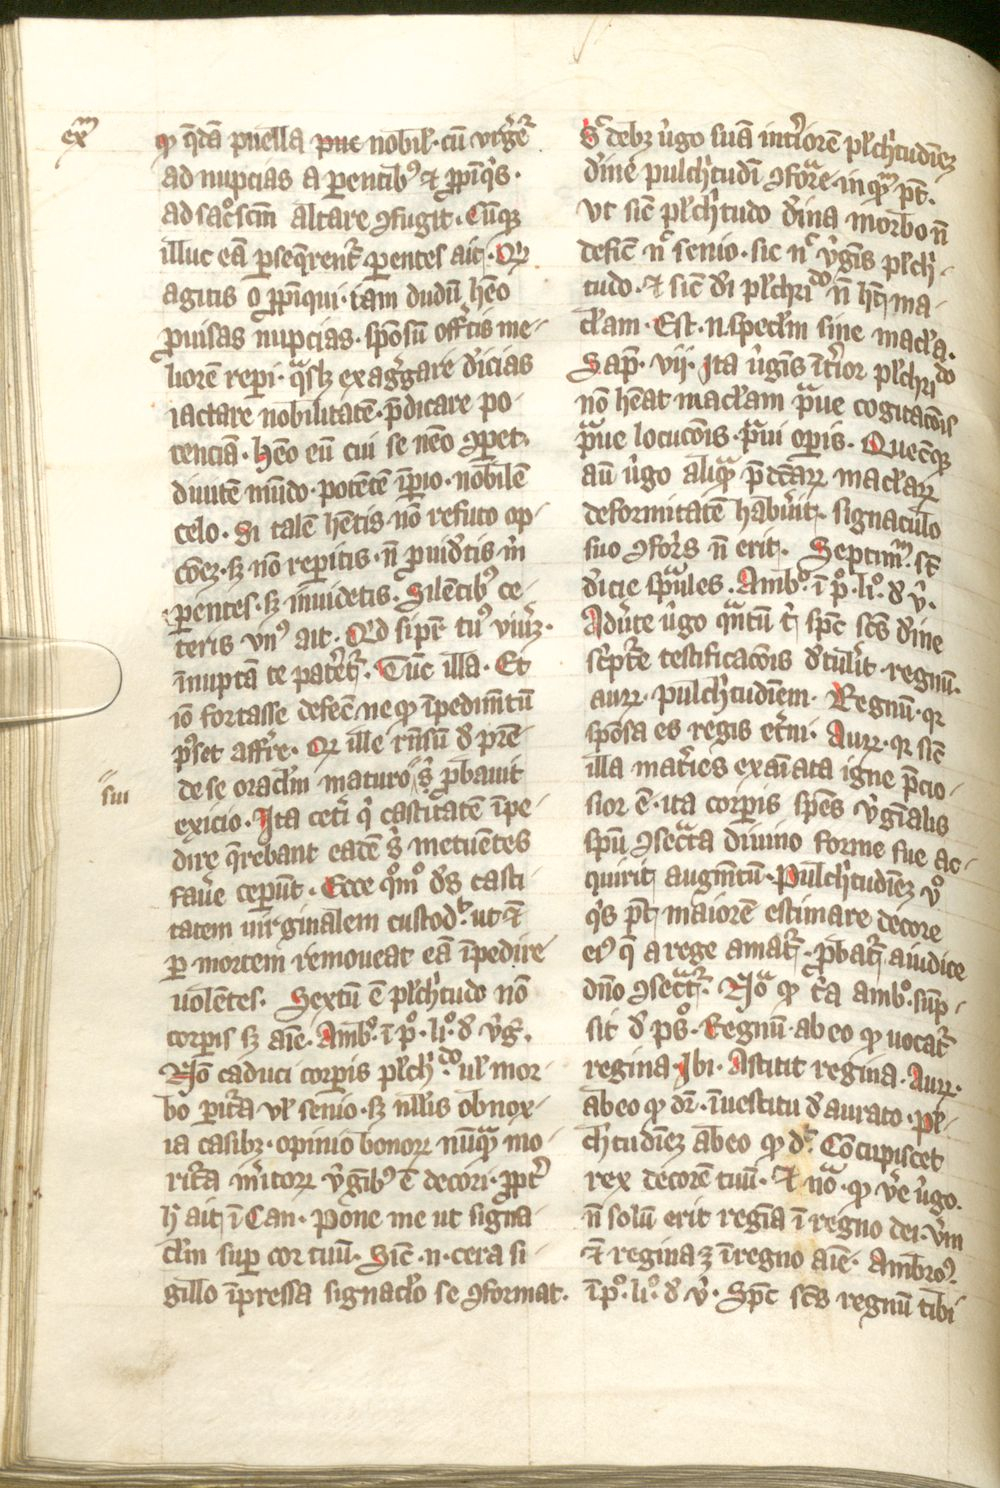 exm
qd qdā puella pue nobil· cū vrgēr
ad nupcias a parentibꝰ ⁊ ꝓpīqͥs·
ad sacͦscm altare ꝯfugit· Cūqꝫ
illuc eā ꝑseqͣrentr̄ parentes ait· Qͥd
agitis o ꝓpīqui· iam dudū hēo
ꝓuisas nupcias· spōsū offr̄tis me-
liorē repi· qͣslꝫ exagḡare diͥcias
iactare nobilitatē· p̄dicare po-
tenciā· hēo eū cui se nēo ꝯꝑet·
diuitē mūdo· potētē īꝑio· nobilē
celo· Si talē hētis nō refuto op-
cōeꝫ· sꝫ nō reꝑitis· n̄ ꝓuidētis m̄
parentes· sꝫ īnuidetis· Silētibꝰ ce-
teris vnꝰ ait· Qͥd si pr̄ tuꝰ viūꝫ·
īnuptā te pater̄etr̄· Tūc illa· Et
iō fortasse defec̄ ne qͥ īpedimētū
pꝰset affr̄e· Qr ille rn̄sū de pr̄e
de se oraclm maturo sͥ ꝓbauit
sui
exicio· Ita cetī qͥ castitatē īpe-
dire qͣrebant eadē sͥ metuētes
fauēe ceperūt· Ecce qͦmͦ dꝰs casti-
tatem uirginalem custod· ut ⁊
per mortem remoueat eā īpedire
uolētes· Sextū ē plchͥtudo nō
corpis sꝫ aīe· Ambͦ· ī pͦ· liͦ· de v̄g·
Nō caduci corpis plchͥdo· ul mor-
bo perit̄a vl senio· sꝫ nllis obnox-
ia casibꝫ· opinio bonoꝝ nūqͣ mo-
rit̄a m̄itoꝝ v̄gībꝰ ē decori· ꝓpt̄
hͥ ait ī Can· Pone me ut signa-
clm sup cor tuū· Sic· n· cera si-
gillo īpressa signaclo se ꝯformat·
Sͥ debꝫ v̄go suā int̄iorē plchͥtudīeꝫ
diͥne pulchͥtudī ꝯforͣe· in qͣm pt̄·
Ut sic̄ plchͥtudo diͥna morbo n̄
defic̄ nͨ senio· sic nͨ v̄gīs plchͥ-
tudo· ⁊ sic̄ di plchrͥdo n̄ ht̄ ma-
clam· Est· n· speclm sine macla·
Sap̄· vij· Ita v̄gīs īt̄ior plchridͦ
nō hēat maclam pͣue cogitacōis
pͣue locucōis· pͣui opis· Quecūqꝫ
aū v̄go aliqͣm p̄dcāꝝ maclaꝝ
deformitatē habūit· signaculo
suo ꝯfors n̄ erit· Septimͫ· st̄
diͥcie spūales· Ambͦ· ī pͦ· liͦ· de v̄·
Aduͥte v̄go qͣntū tͥ spc̄ scs̄ diͥne
scͥptͬe testificacōis dͥtulit· regnū·
auꝝ· pulchͥtudīem· Regnū· qꝛ
spōsa es regis et̄ni· Auꝝ· qꝛ sic̄
illa mat̄ies exaīata igne p̄cio-
sior ē· ita corpis spēs v̄gīalis
spū ꝯsecͣta diuino forme sue ac-
quirit augmētū· Pulchͥtudīeꝫ vͦ
qͥs pt̄ maiorē estimare decore
eiꝰ q̄ a rege amatr̄· ꝓbatr̄ a iudice
dn̄o ꝯsecͣtr̄· Noͣ qd tͥa ambͦ· sūp-
sit de psͦ· Regnū· ab eo qd uocatr̄
regina· Ibi· Astitit regina· Auꝝ·
ab eo qd dr̄· ī uestitu deaurato· pl-
chͥtudīeꝫ ab eo qd dͬ· Cōcupiscet
rex decorē tuū· ⁊ noͣ· qd ve v̄go·
n̄ solū erit regīa ī regno dei· v̄m
⁊ regina ꝫ ī regno aīe· Ambroꝰ·
ī pͦ· liͦ· de v̄· Spc̄ scs̄ regnū tibi